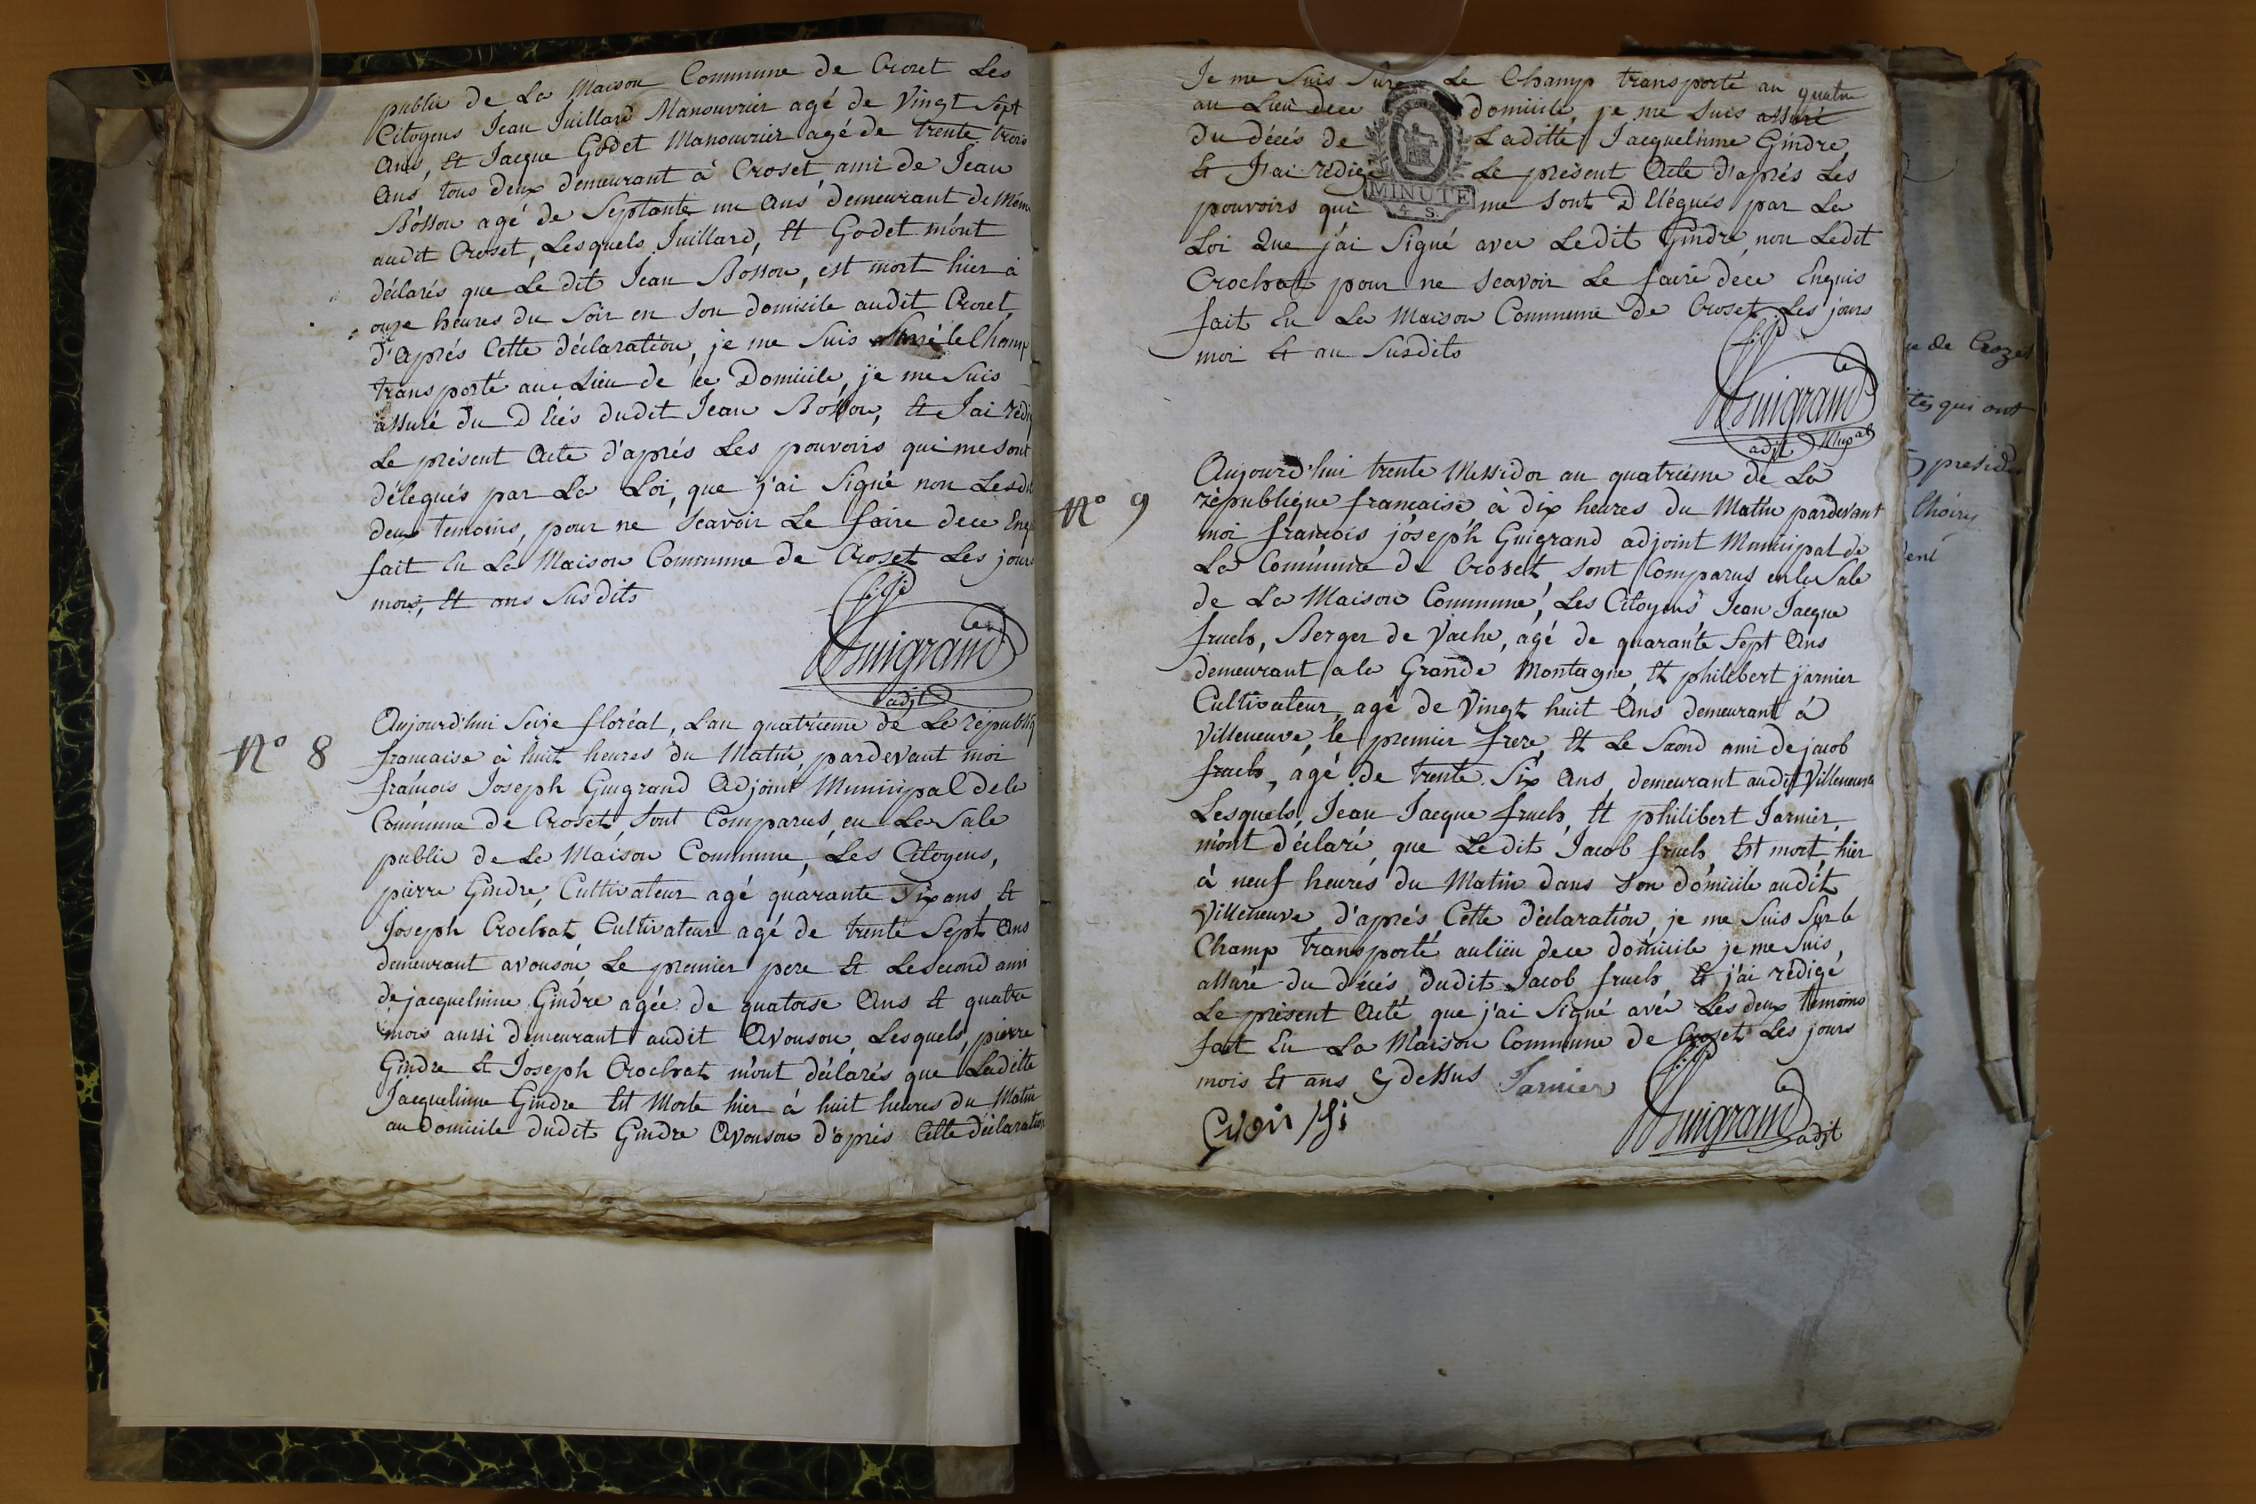 public de La Maison Commune de Croset Les
Citoyens Jean Juillard Manouvrier agé de Vingt Sept
ans, Et Jacque Godet Manouvrier agé de trente trois
ans tous deux demeurant á Croset ami de Jean
Bosson agé de Septante un ans demeurant de Mém
audit Croset, Lesquels Juillard, Et Godet m'ont
déclarés que Le dit Jean Bosson, est mort hier à
onze heures du Soir en Son domicile audit Croset
d'Aprés Cette déclaration, je me Suis le Champ
transporté au Lieu de ce Domicile, je me Suis
assuré du Décés dudit Jean Bosson, Et J'ai rédi
Le présent Acte d'aprés Les pouvoirs qui me sont
délegués par La Loi, que j'ai Signé non Lesd
deux temoins, pour ne Scavoir Le faire dece Enq
fait En La Maison Commune de Croset Les jour
mois, Et ans Susdits
Guigrand
adjt
N° 8
Aujourd'hui Seize floréal, Lan quatriéme de La républiq
francaise à huit heures du Matin, pardevant moi
francois Joseph Guigrand Adjoint Municipal de la
Commune de Croset, Sont Comparus, en La Sale
public de La Maison Commune, Les Citoyens,
pierre Gindre, Cultivateur agé quarante Six ans, Et
Joseph Crochat Cultivateur agé de trente Sept Ans
demeurant avouson Le premier pere Et Le second ami
de jacquelinne Gindre agée de quatorse Ans Et quatre
mois aussi demeurant audit Avouson, Lesquels, pierre
Gindre Et Joseph Crochat m'ont déclarés que Ladette
Jacquelinne Gindre Est Morte hier á huit heures du Matin
au Domicile dudit Gindre Avouson d'aprés Cette déclaration
Je me Suis Sur Le Champ transporté au quatre
au Lieu dece domicile, je me Suis assuré
du décés de Ladette Jacquelinne Gindre
Et J'ai rédigé Le présent Acte d'aprés Les
pouvoirs qui me Sont Délégués par La
Loi Que j'ai Signé avec Ledit Gindre, non Ledit
Crochat pour ne Scavoir Le faire dece Enquis
fait En La Maison Commune de Croset Les jours
moi Et an Susdits
MINUTE
4. S.
Guigrand
adjt Mupal
N° 9
Aujourd'hui trente Messidor an quatriéme de La
république francaise à dix heures du Matin pardevant
moi francois joseph Guigrand adjoint Municipal de
La Commune de Croset, Sont Comparus en la Sale
de La Maison Commune, Les Citoyens Jean Jacque
frueh, Berger de Vache, agé de quarante Sept Ans
demeurant a la Grande Montagne, Et philebert jarnier
Cultivateur, agé de Vingt huit Ans demeurant á
Villeneuve, le premier frere, Et Le Second ami de jacob
frueh, agé de trente Six Ans, demeurant audit Villeneuve
Lesquels, Jean Jacque frueh, Et philibert Jarnier,
m'ont déclaré, que Ledit Jacob frueh, Est mort, hier
à neuf heures du Matin dans Son domicile audit
Villeneuve d'aprés Cette déclaration, je me Suis Sur le
Champ transporté au lieu dece domicile je me Suis,
assuré du décés dudit Jacob frueh, Et j'ai rédigé
Le présent Acte que j'ai Signé avec Les deux temoins
fait En La Maison Commune de Croset Les jours
mois Et ans Cydessus Jarnier
Guigrand adjt
ue de Crozet
tés qui ont
preside
Choisy